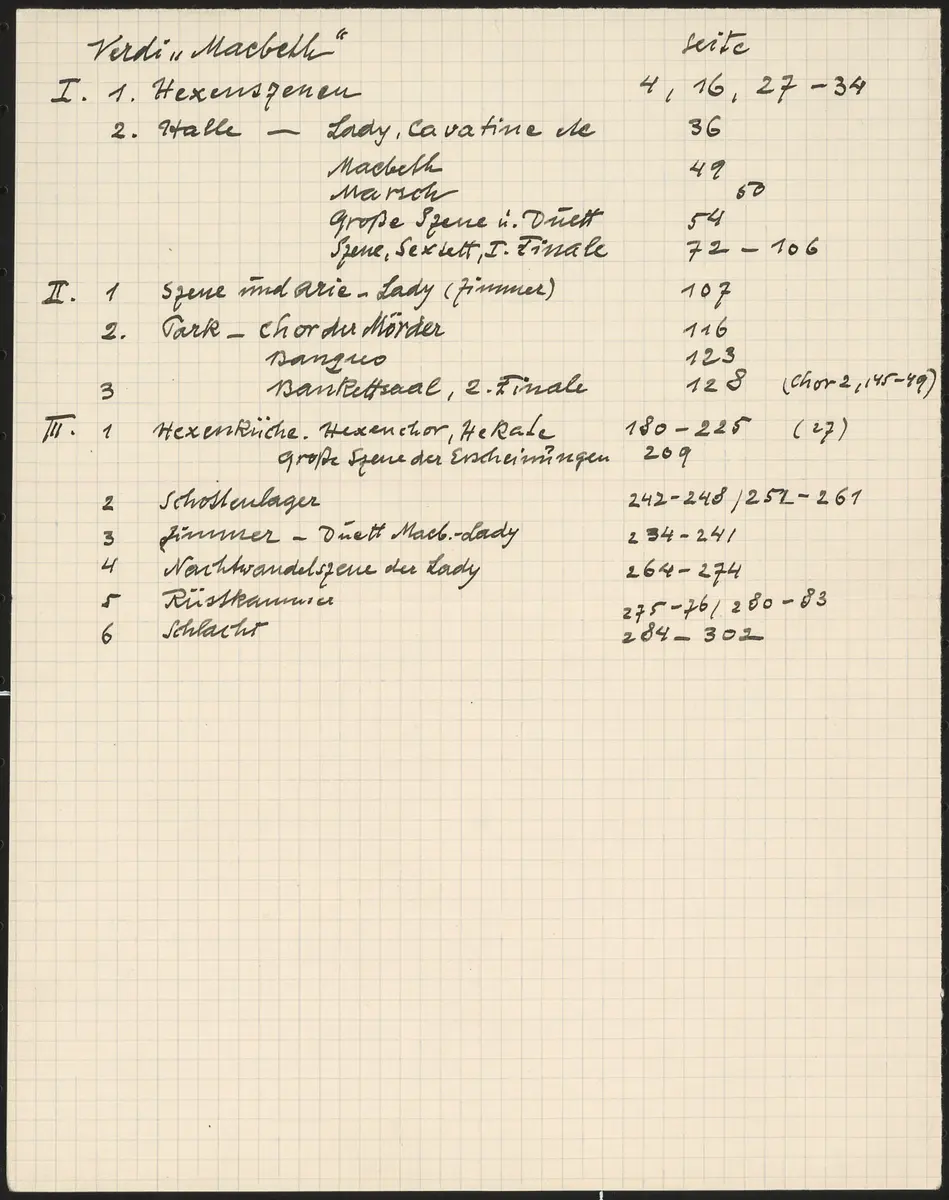 Verdi „Macbeth“ Seite
I. 1. Hexenszenen 4, 16, 27 – 34
2. Halle — Lady, Cavatine etc 36
Macbeth 49
Marsch 50
Große Szene u. Duett 54
Szene, Sextett, I. Finale 72 – 106
II. 1 Szene und Arie – Lady (Zimmer) 107
2. Park – Chor der Mörder 116
Banquo 123
3 Bankettsaal, 2. Finale 128 (Chor 2, 145–49)
III. 1 Hexenküche. Hexenchor, Hekate 180 – 225 (27)
Große Szene der Erscheinungen 209
2 Schottenlager 242–248 / 251 – 261
3 Zimmer – Duett Macb.-Lady 234–241
4 Nachtwandelszene der Lady 264–274
5 Rüstkammer 275–76 / 280 – 83
6 Schlacht 284 – 302